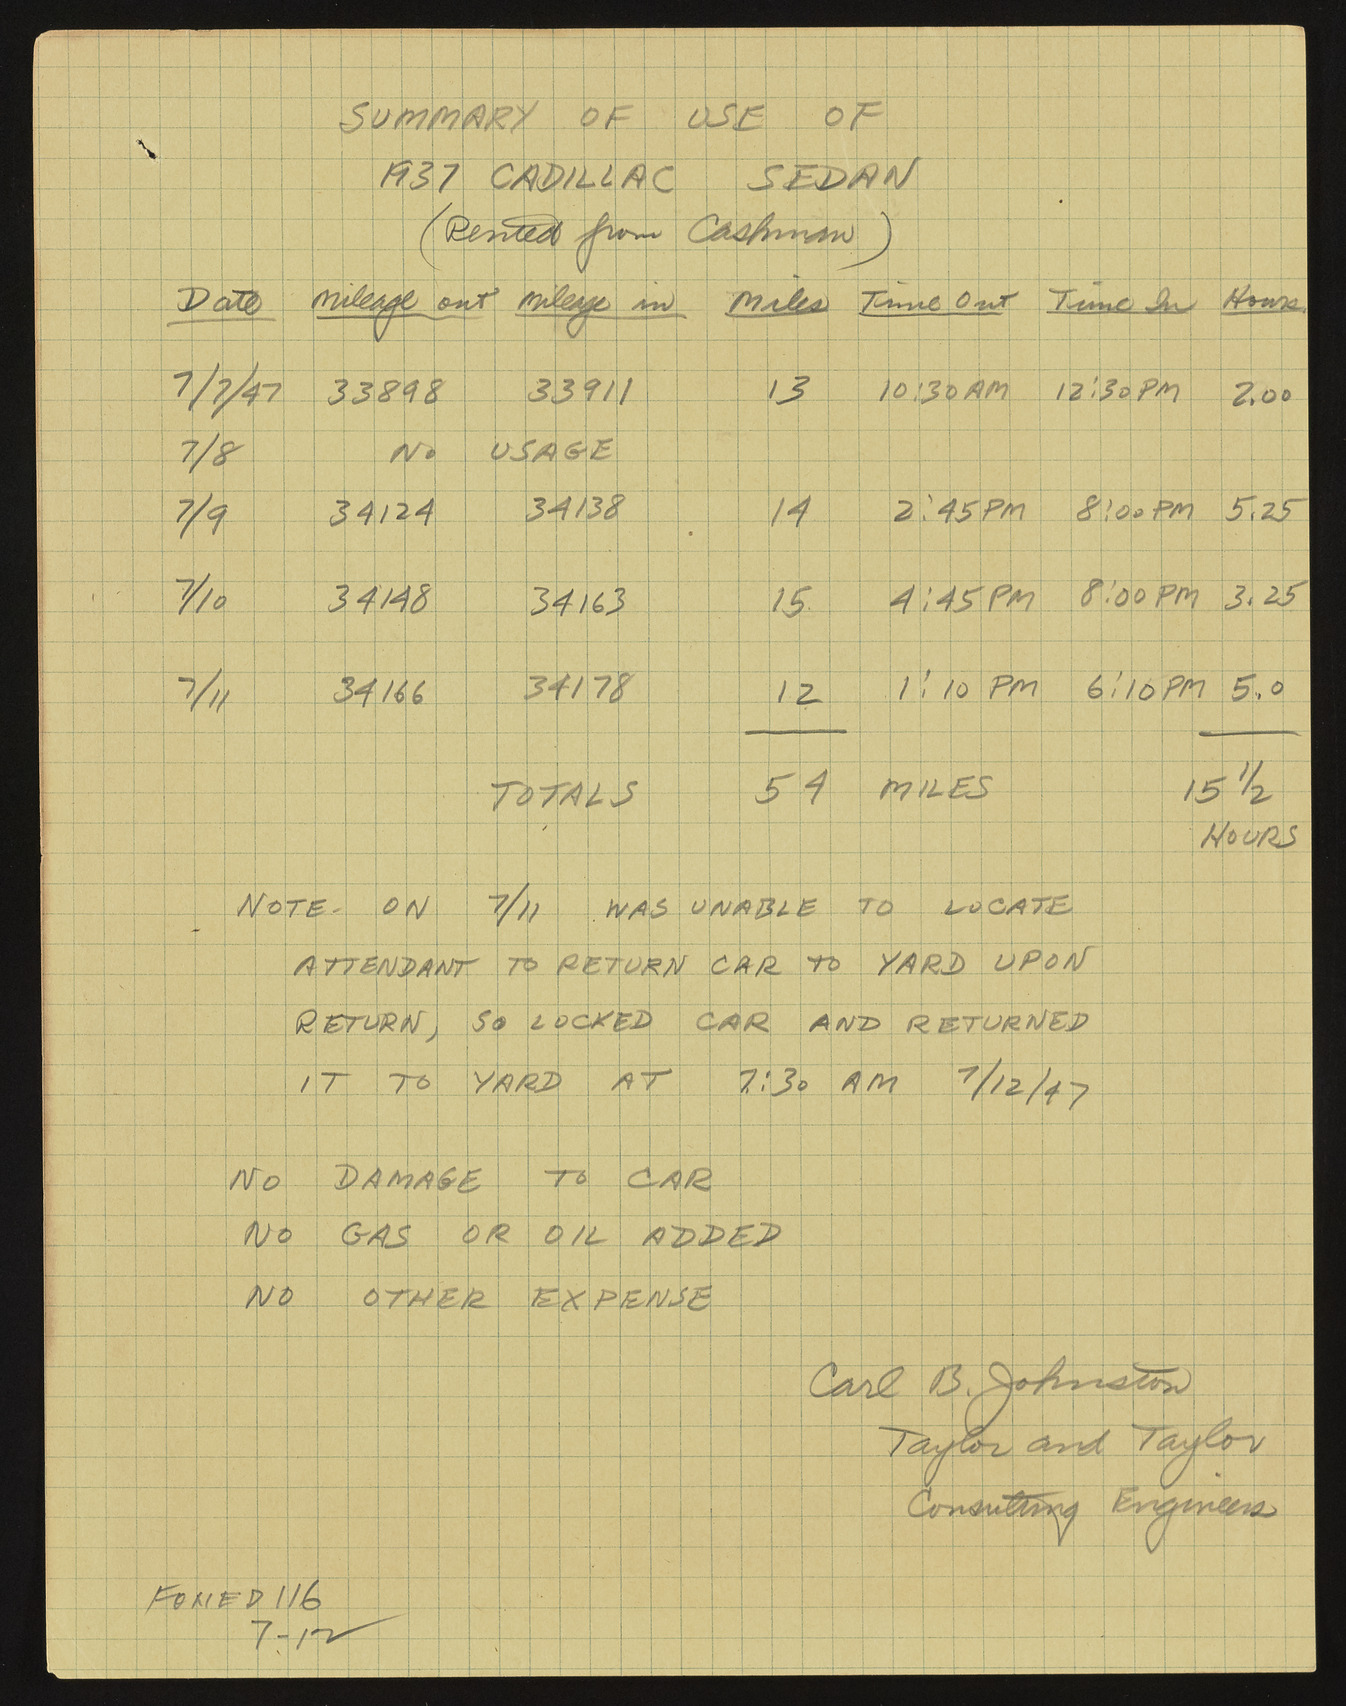 SUMMARY OF USE OF
1937 CADILLAC SEDAN
(Rented from Cashman)
Date Mileage out Mileage in Miles Time Out Time In Hours
7/7/47 33898 33911 13 10:30 AM 12:30 PM 2.00
7/8 No USAGE
7/9 34124 34138 14 2:45 PM 8:00 PM 5.25
7/10 34148 34163 15 4:45 PM 8:00 PM 3.25
7/11 34166 34178 12 1:10 PM 6:10 PM 5.0
TOTALS 54 MILES 15 1/2
HOURS
NOTE- ON 7/11 WAS UNABLE TO LOCATE
ATTENDANT TO RETURN CAR TO YARD UPON
RETURN, SO LOCKED CAR AND RETURNED
IT TO YARD AT 7:30 AM 7/12/47
NO DAMAGE TO CAR
NO GAS OR OIL ADDED
NO OTHER EXPENSE
Carl B. Johnston
Taylor and Taylor
Consulting Engineers
116
7-12